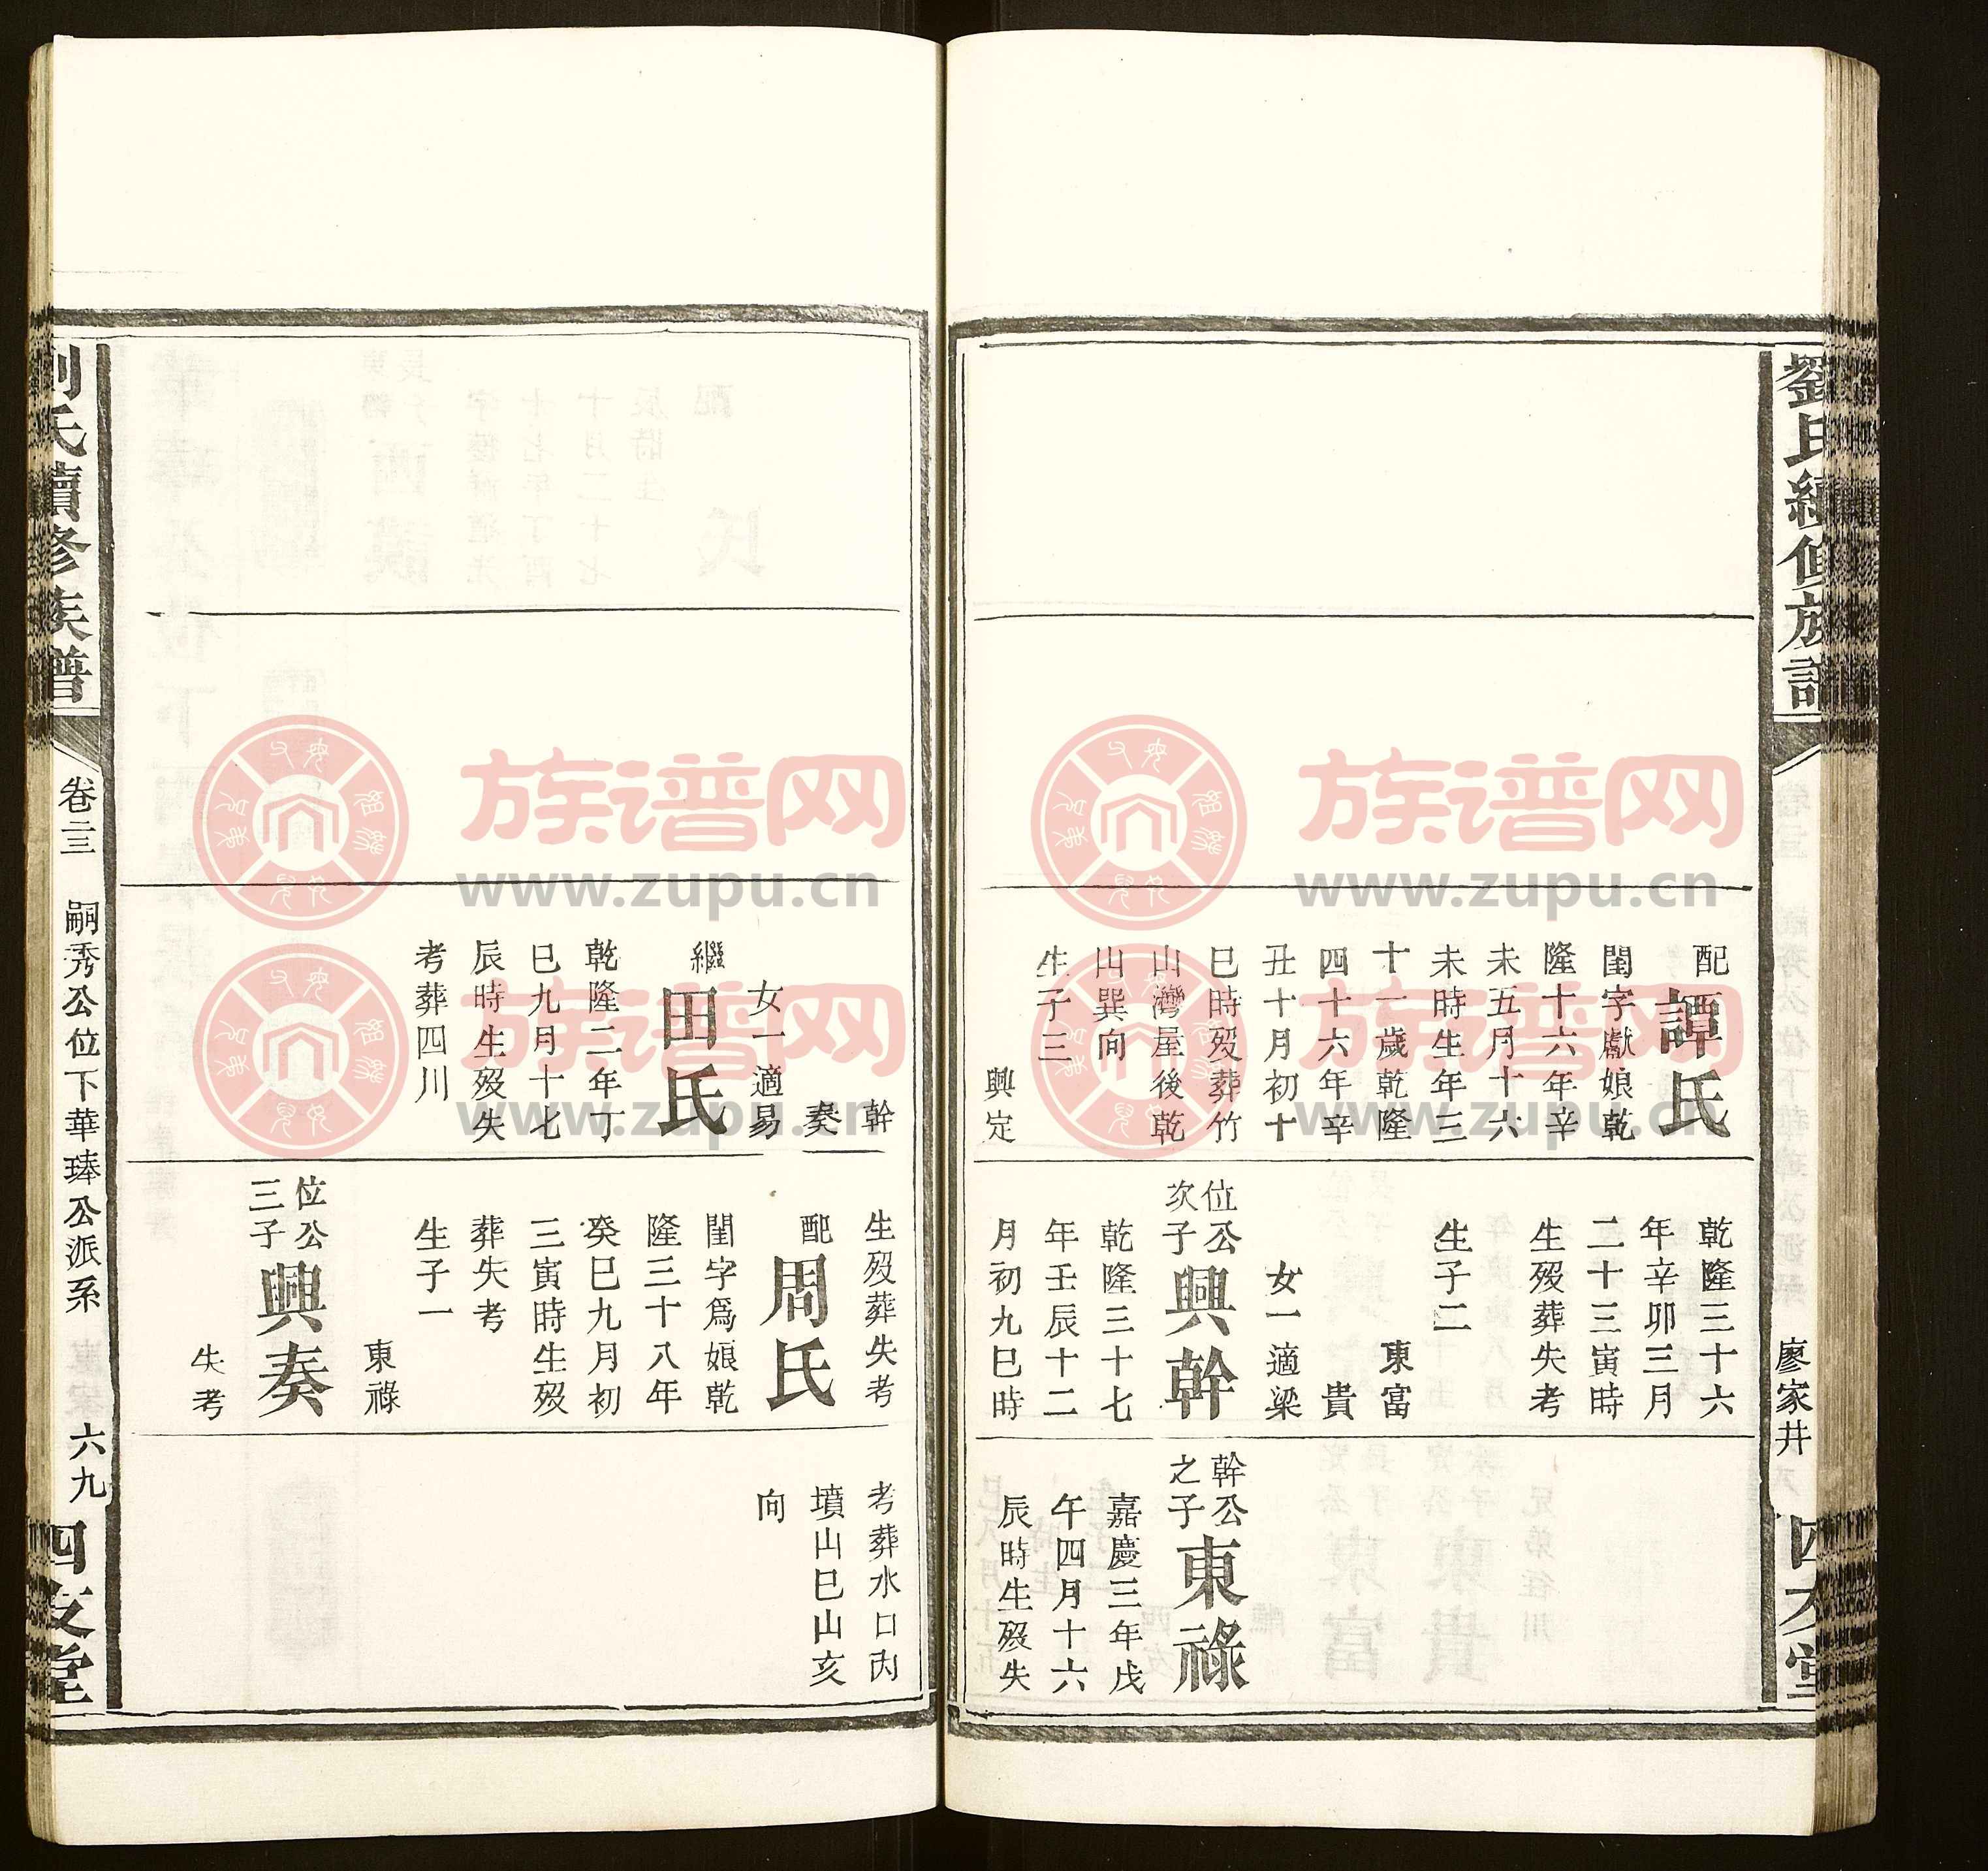 劉氏續修族譜
廖家井
四文堂
配
譚氏
閨字獻娘乾
隆十六年辛
未五月十六
未時生年三
十一歲乾隆
四十六年辛
丑十月初十
巳時歿葬竹
山灣屋後乾
山巽向
生子三
興定
乾隆三十六
年辛卯三月
二十三寅時
生歿葬失考
生子二
東富
貴
女一適梁
位公
次子
興幹
乾隆三十七
年壬辰十二
月初九巳時
幹公
之子
東祿
嘉慶三年戊
午四月十六
辰時生歿失
幹
奏
女一適易
繼
田氏
乾隆二年丁
巳九月十七
辰時生歿失
考葬四川
生歿葬失考
配
周氏
閨字爲娘乾
隆三十八年
癸巳九月初
三寅時生歿
葬失考
生子一
東祿
位公
三子
興奏
失考
考葬水口丙
墳山巳山亥
向
劉氏續修族譜
卷三
嗣秀公位下華琫公派系
六九
四文堂
族谱网
www.zupu.cn
族谱网
www.zupu.cn
www.zupu.cn
www.zupu.cn